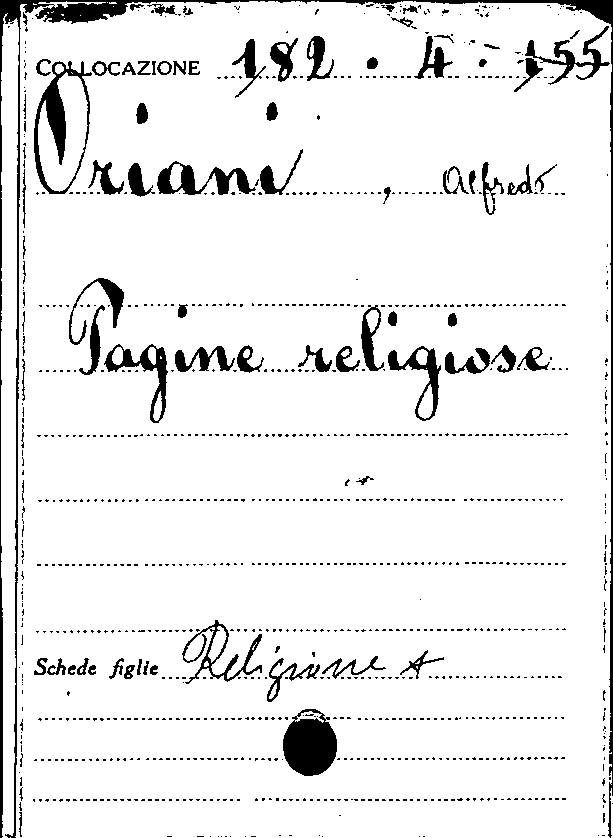 COLLOCAZIONE 182 . 4 . 155
Oriani , Alfredo
Pagine religiose
Schede figlie Religione